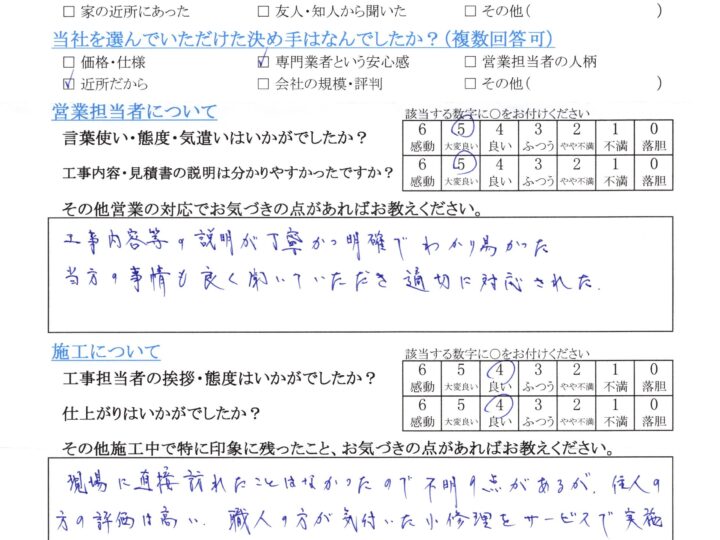 □ 家の近所にあった □ 友人・知人から聞いた □ その他( )
当社を選んでいただけた決め手はなんでしたか？（複数回答可）
□ 価格・仕様 ☑ 専門業者という安心感 □ 営業担当者の人柄
☑ 近所だから □ 会社の規模・評判 □ その他( )
営業担当者について 該当する数字に〇をお付けください
言葉使い・態度・気遣いはいかがでしたか？ 6 5 4 3 2 1 0
感動 大変良い 良い ふつう やや不満 不満 落胆
工事内容・見積書の説明は分かりやすかったですか？ 6 5 4 3 2 1 0
感動 大変良い 良い ふつう やや不満 不満 落胆
その他営業の対応でお気づきの点があればお教えください。
工事内容等の説明が丁寧かつ明確でわかり易かった
当方の事情も良く聞いていただき適切に対応された.
施工について 該当する数字に〇をお付けください
工事担当者の挨拶・態度はいかがでしたか？ 6 5 4 3 2 1 0
感動 大変良い 良い ふつう やや不満 不満 落胆
仕上がりはいかがでしたか？ 6 5 4 3 2 1 0
感動 大変良い 良い ふつう やや不満 不満 落胆
その他施工中で特に印象に残ったこと、お気づきの点があればお教えください。
現場に直接訪れたことはなかったので不明の点があるが、住人の
方の評価は高い. 職人の方が気付いた小修理をサービスで実施